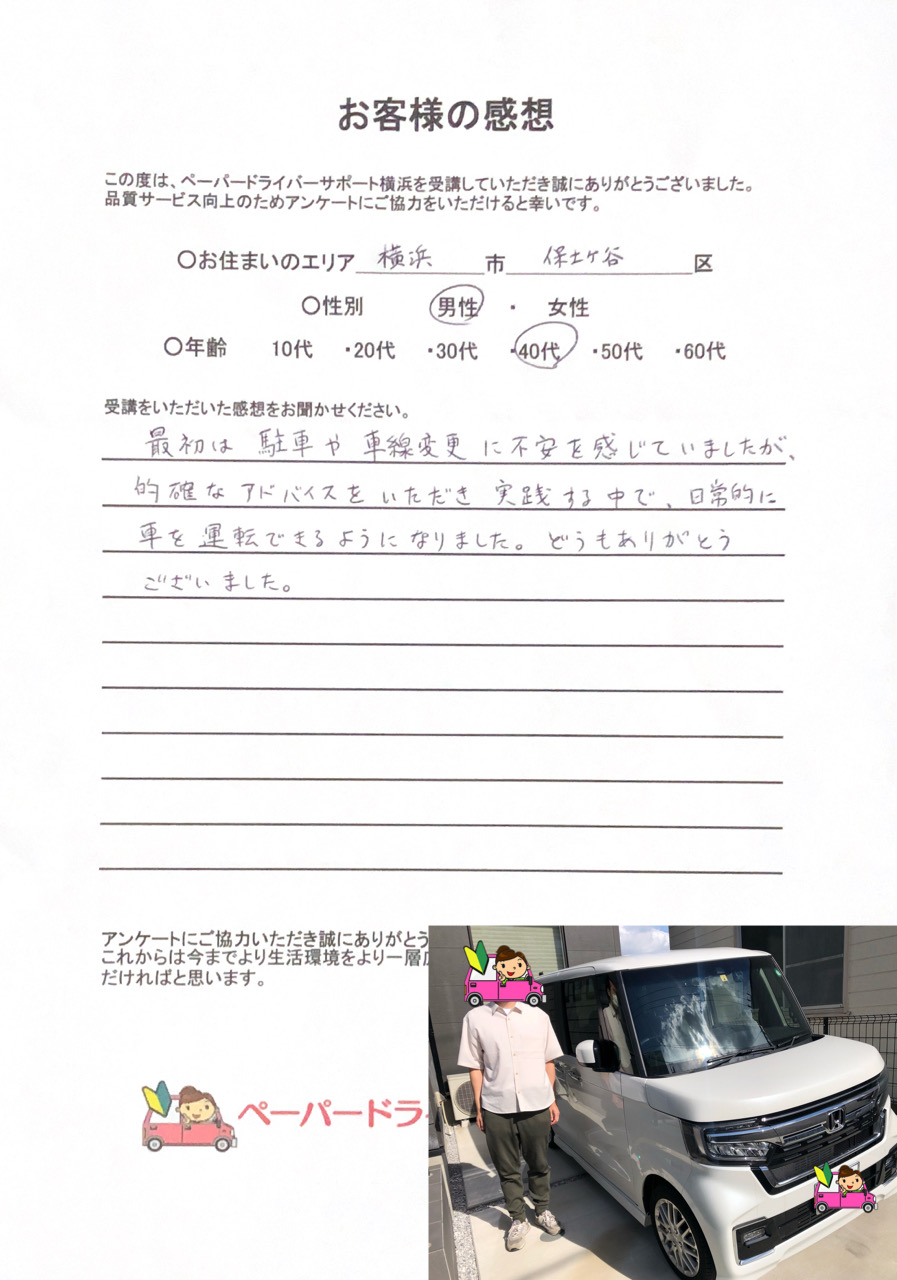 お客様の感想
この度は、ペーパードライバーサポート横浜を受講していただき誠にありがとうございました。
品質サービス向上のためアンケートにご協力をいただけると幸いです。
○お住まいのエリア 横浜 市 保土ヶ谷 区
○性別 男性 ・ 女性
○年齢 10代 ・20代 ・30代 ・40代 ・50代 ・60代
受講をいただいた感想をお聞かせください。
最初は 駐車や 車線変更に不安を感じていましたが、
的確な アドバイスを いただき 実践する中で、日常的に
車を 運転できるようになりました。どうもありがとう
ございました。
アンケートにご協力いただき誠にありがとう
これからは今までより生活環境をより一層
だければと思います。
ペーパードライ